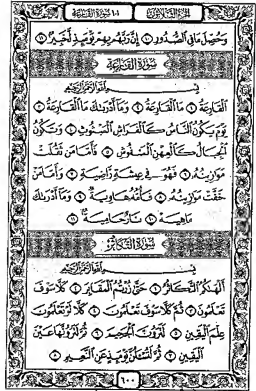 الجزء الثلاثون ١٠١ سورة القارعة
وَحُصِّلَ مَا فِي الصُّدُورِ ۝ إِنَّ رَبَّهُم بِهِمْ يَوْمَئِذٍ لَّخَبِيرٌ ۝
سورة القارعة
بسم الله الرحمن الرحيم
الْقَارِعَةُ ۝ مَا الْقَارِعَةُ ۝ وَمَا أَدْرَاكَ مَا الْقَارِعَةُ ۝
يَوْمَ يَكُونُ النَّاسُ كَالْفَرَاشِ الْمَبْثُوثِ ۝ وَتَكُونُ
الْجِبَالُ كَالْعِهْنِ الْمَنفُوشِ ۝ فَأَمَّا مَن ثَقُلَتْ
مَوَازِينُهُ ۝ فَهُوَ فِي عِيشَةٍ رَّاضِيَةٍ ۝ وَأَمَّا مَنْ
خَفَّتْ مَوَازِينُهُ ۝ فَأُمُّهُ هَاوِيَةٌ ۝ وَمَا أَدْرَاكَ
مَا هِيَهْ ۝ نَارٌ حَامِيَةٌ ۝
سورة التكاثر
بسم الله الرحمن الرحيم
أَلْهَاكُمُ التَّكَاثُرُ ۝ حَتَّىٰ زُرْتُمُ الْمَقَابِرَ ۝ كَلَّا سَوْفَ
تَعْلَمُونَ ۝ ثُمَّ كَلَّا سَوْفَ تَعْلَمُونَ ۝ كَلَّا لَوْ تَعْلَمُونَ
عِلْمَ الْيَقِينِ ۝ لَتَرَوُنَّ الْجَحِيمَ ۝ ثُمَّ لَتَرَوُنَّهَا عَيْنَ
الْيَقِينِ ۝ ثُمَّ لَتُسْأَلُنَّ يَوْمَئِذٍ عَنِ النَّعِيمِ ۝
٦٠٠